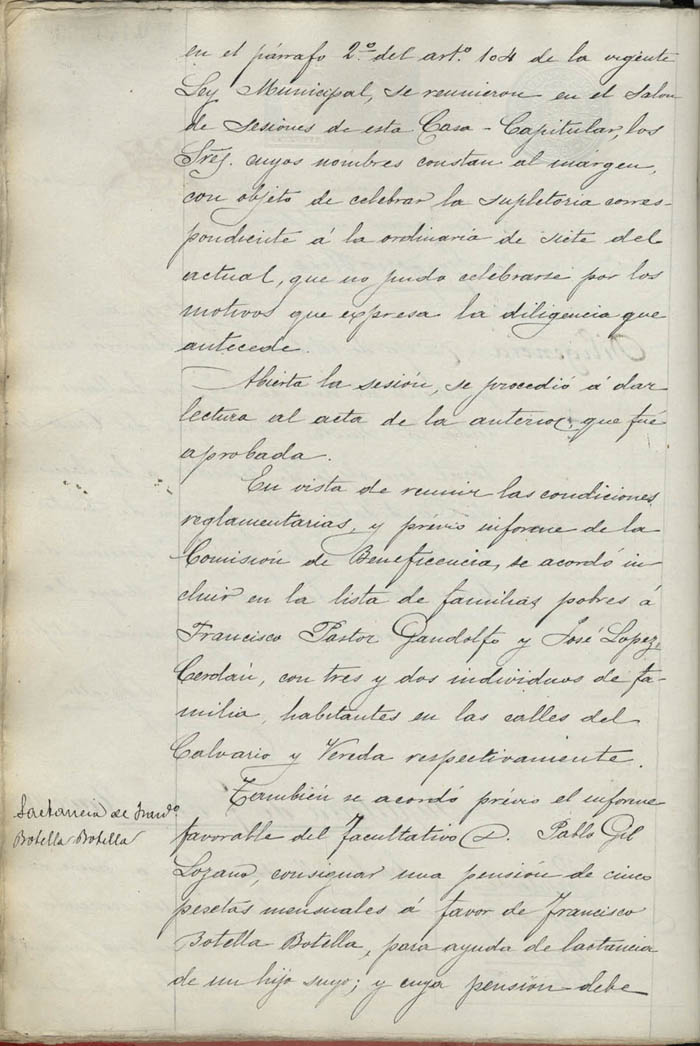 en el párrafo 2.º del art.º 104 de la vigente
Ley Municipal, se reunieron en el salon
de sesiones de esta Casa-Capitular, los
Sres. cuyos nombres constan al márgen,
con objeto de celebrar la supletoria corres-
pondiente á la ordinaria de siete del
actual, que no pudo celebrarse por los
motivos que expresa la diligencia que
antecede.
Abierta la sesión, se procedió á dar
lectura al acta de la anterior, que fué
aprobada.
En vista de reunir las condiciones
reglamentarias, y prévio informe de la
Comisión de Beneficencia, se acordó in-
cluir en la lista de familias pobres á
Francisco Pastor Gandolfo y José Lopez
Cerdán, con tres y dos individuos de fa-
milia, habitantes en las calles del
Calvario y Vereda respectivamente.
Lactancia de Fran.co
Botella Botella
También se acordó prévio el informe
favorable del facultativo D. Pablo Gil
Lozano, consignar una pensión de cinco
pesetas mensuales á favor de Francisco
Botella Botella, para ayuda de lactancia
de un hijo suyo; y cuya pensión debe